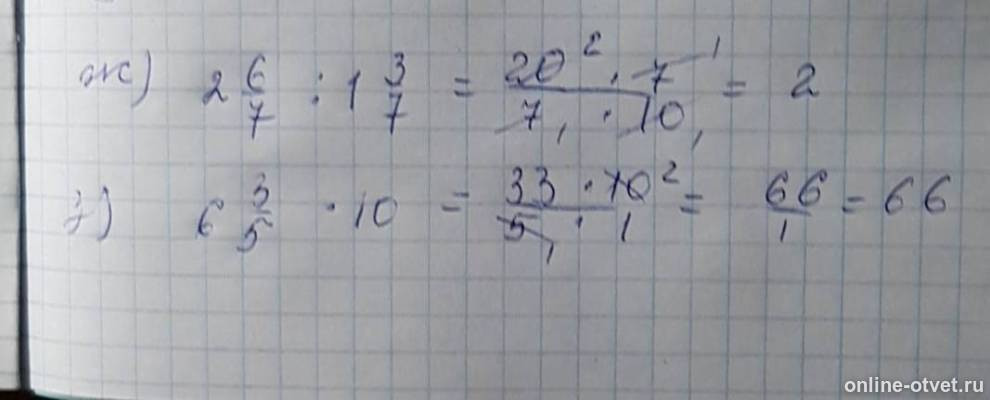 ж) 2 6/7 : 1 3/7 = 20² · 7¹ / 7₁ · 10₁ = 2
з) 6 3/5 · 10 = 33 · 10² / 5₁ · 1 = 66/1 = 66
online-otvet.ru